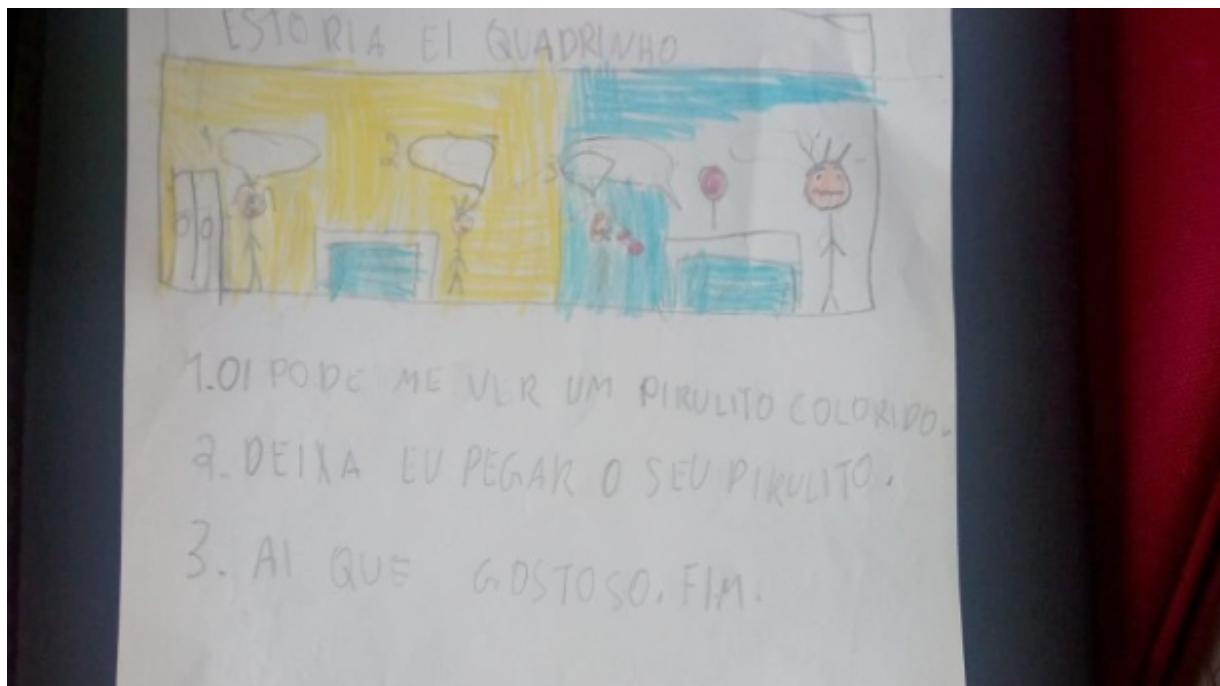 ESTORIA EI QUADRINHO
1
2
3
1.OI PODE ME VER UM PIRULITO COLORIDO.
2. DEIXA EU PEGAR O SEU PIRULITO.
3. AI QUE GOSTOSO. FIM.